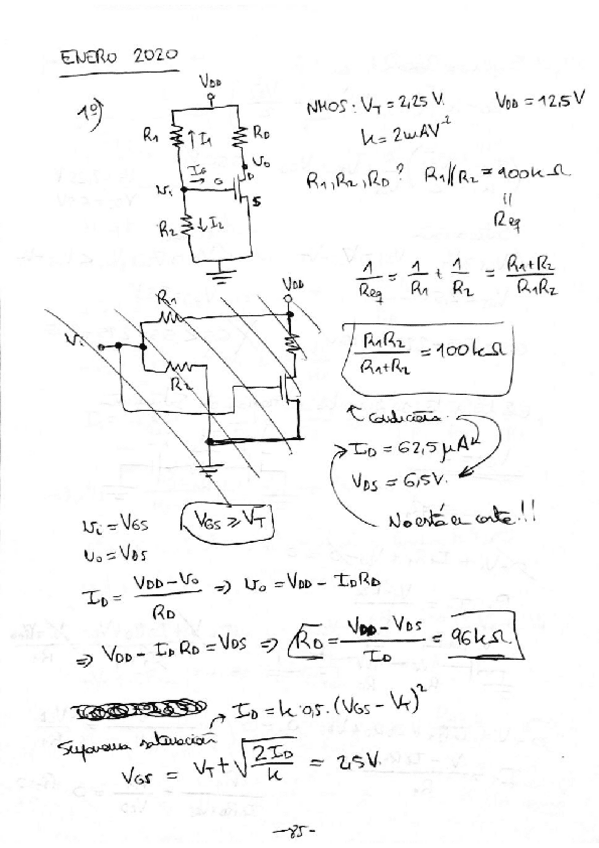 ENERO 2020
1º)
V_DD
R1 ↑I1 R_D
I_G → 0 D V_o
v_i S
R2 ↓I2
NMOS: V_T = 2,25 V. V_DD = 12,5 V
k = 2mAV^-2
R1, R2, R_D? R1//R2 = 100kΩ
||
Req
1/Req = 1/R1 + 1/R2 = (R1+R2)/(R1R2)
R1R2/(R1+R2) = 100kΩ
R1 V_DD
V_i
R2
↑ Condición.
→ I_D = 62,5 μA
V_DS = 6,5V.
No está en corte!!!
v_i = V_GS V_GS ≥ V_T
v_o = V_DS
I_D = (V_DD - V_o)/R_D ⇒ v_o = V_DD - I_D R_D
⇒ V_DD - I_D R_D = V_DS ⇒ R_D = (V_DD - V_DS)/I_D = 96kΩ.
I_D = k·0,5·(V_GS - V_T)^2
Suponemos saturación
V_GS = V_T + √(2I_D/k) = 2,5V.
-85-